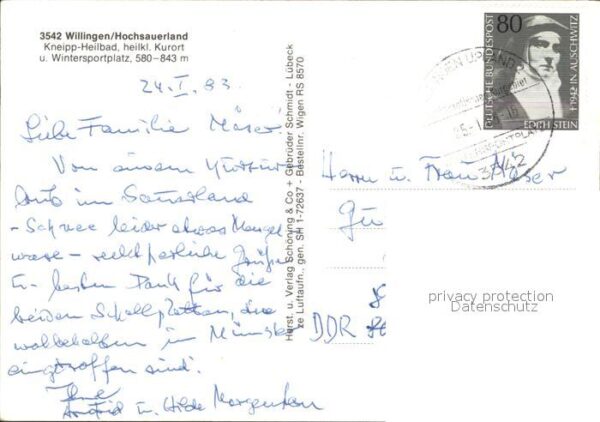 3542 Willingen/Hochsauerland
Kneipp-Heilbad, heilkl. Kurort
u. Wintersportplatz, 580-843 m
24.I.83
Liebe Familie Möser
Von einem
im Sauerland
- Schnee leider etwas Mangel
ware - recht herzliche Grüße
u. besten Dank für die
beiden Schallplatten, die
wohlbehalten in Münster
eingetroffen sind.
Ihre
Astrid u. Hilde Morgenthau
Horst. u. Verlag Schöning & Co + Gebrüder Schmidt - Lübeck
ze Luftaufn., gen. SH 1-72637, Bestellnr. Wigen RS 8570
80
DEUTSCHE BUNDESPOST
EDITH STEIN
+ 1942 IN AUSCHWITZ
3542
Herrn u. Frau Möser
DDR
privacy protection
Datenschutz